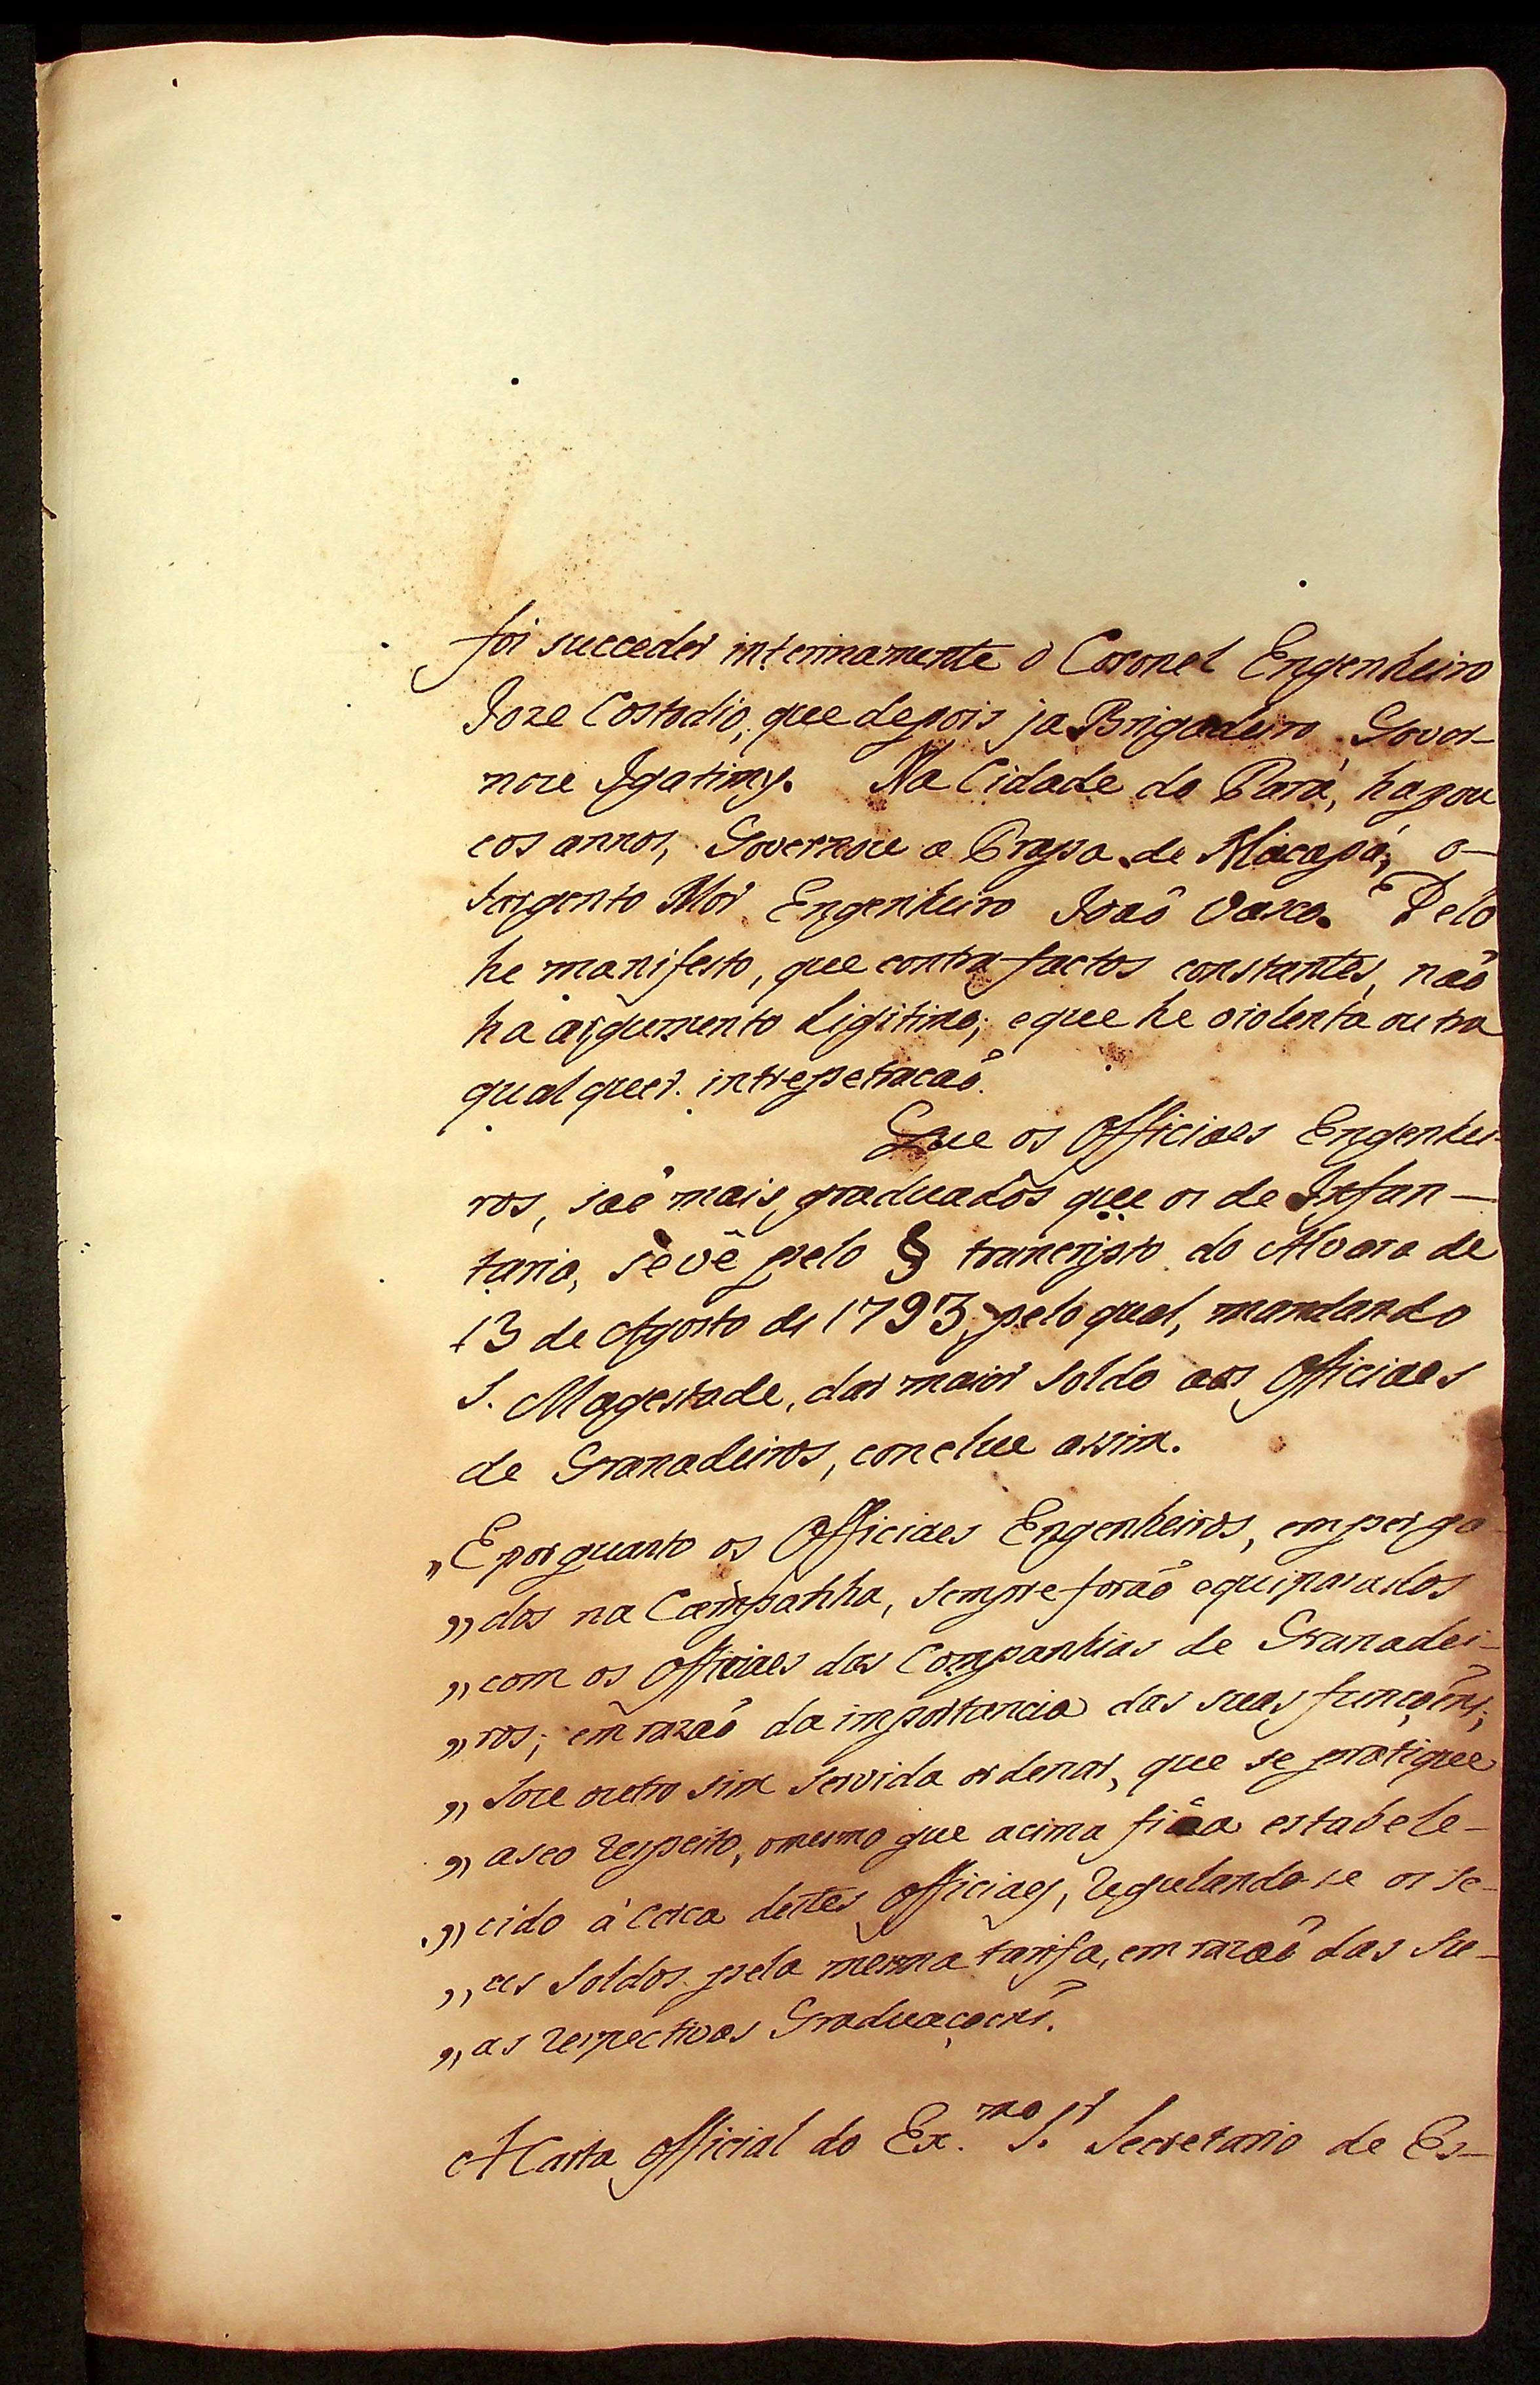 foi succeder interinamente o Coronel Engenheiro
Joze Costodio, que depois ja Brigadeiro, Gover-
nou Igatimy. Na Cidade do Pará, ha pou
cos annos, Governou a Praça de Macapá, o-
Sargento Mór Engenheiro Joaõ Vasco. E Pelo
he manifesto, que contra factos constantes, naõ
ha argumento Ligitimo; e que he violenta outra
qualquer intrepetracaõ.
Que os Officiaes Engenhei-
ros, saõ mais graduados que os de Infan-
taria, se vê pelo § trancripto do Alvara de
13 de Agosto de 1793, pelo qual, mandando
S. Magestade, dar maior Soldo aos Officiaes
de Granadeiros, conclue assim.
„ E porquanto os Officiaes Engenheiros, emperga-
„ dos na Campanha, Sempre foraõ equiparados
„ com os Officiaes das Companhias de Granadei-
„ ros; em razaõ da importancia das suas funçoens;
„ Sou outro sim Servida ordenar, que se pratique
„ a seo respeito, o mesmo que acima fica estabele-
„ cido á cerca destes Officiaes, regulando-se os se-
„ us Soldos pela mesma tarifa, em razaõ das su-
„ as respectivas Graduaçoens.
A Carta Official do Ex.mo S.r Secretario de Es-